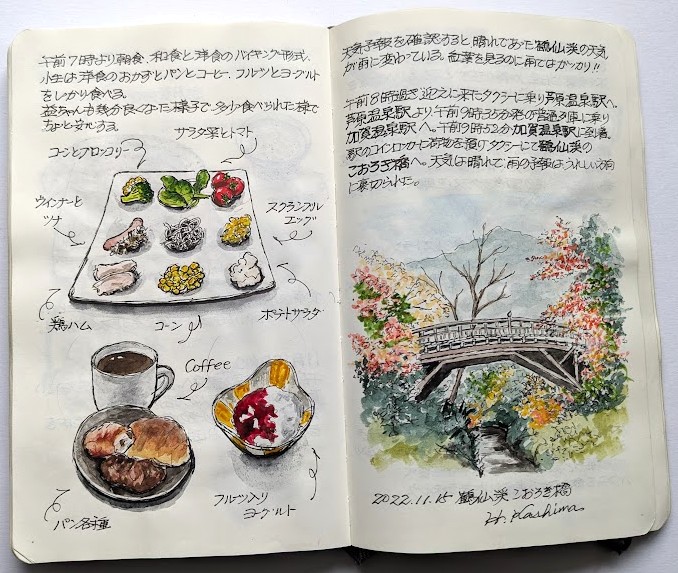 午前7時より朝食、和食と洋食のバイキング形式、
小生は洋食のおかずとパンとコーヒー、フルーツとヨーグルト
をしっかり食べる。
益ちゃんも幾分良くなった様子で、多少食べられた様で
ちょと安心する。
サラダ菜とトマト
コーンとブロッコリー
ウインナーと
ツナ
スクランブル
エッグ
鶏ハム
コーン
ポテトサラダ
Coffee
パン各種
フルーツ入り
ヨーグルト
天気予報を確認すると、晴れであった鶴仙渓の天気
が雨に変わっている。紅葉を見るのに雨ではガッカリ!!
午前8時過ぎ、迎えに来たタクシーに乗り芦原温泉駅へ。
芦原温泉駅より、午前9時35分発の普通列車に乗り
加賀温泉駅へ。午前9時52分加賀温泉駅に到着、
駅のコインロッカーに荷物を預けタクシーにて鶴仙渓の
こおろぎ橋へ。天気は晴れて、雨の予報はうれしい方向
に裏切られた。
2022.11.15 鶴仙渓 こおろぎ橋
H. Kashima